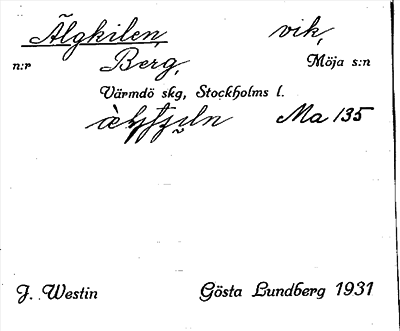 Älgkilen, vik,
n:r Berg, Möja s:n
Värmdö skg, Stockholms l.
Ma 135
J. Westin Gösta Lundberg 1931